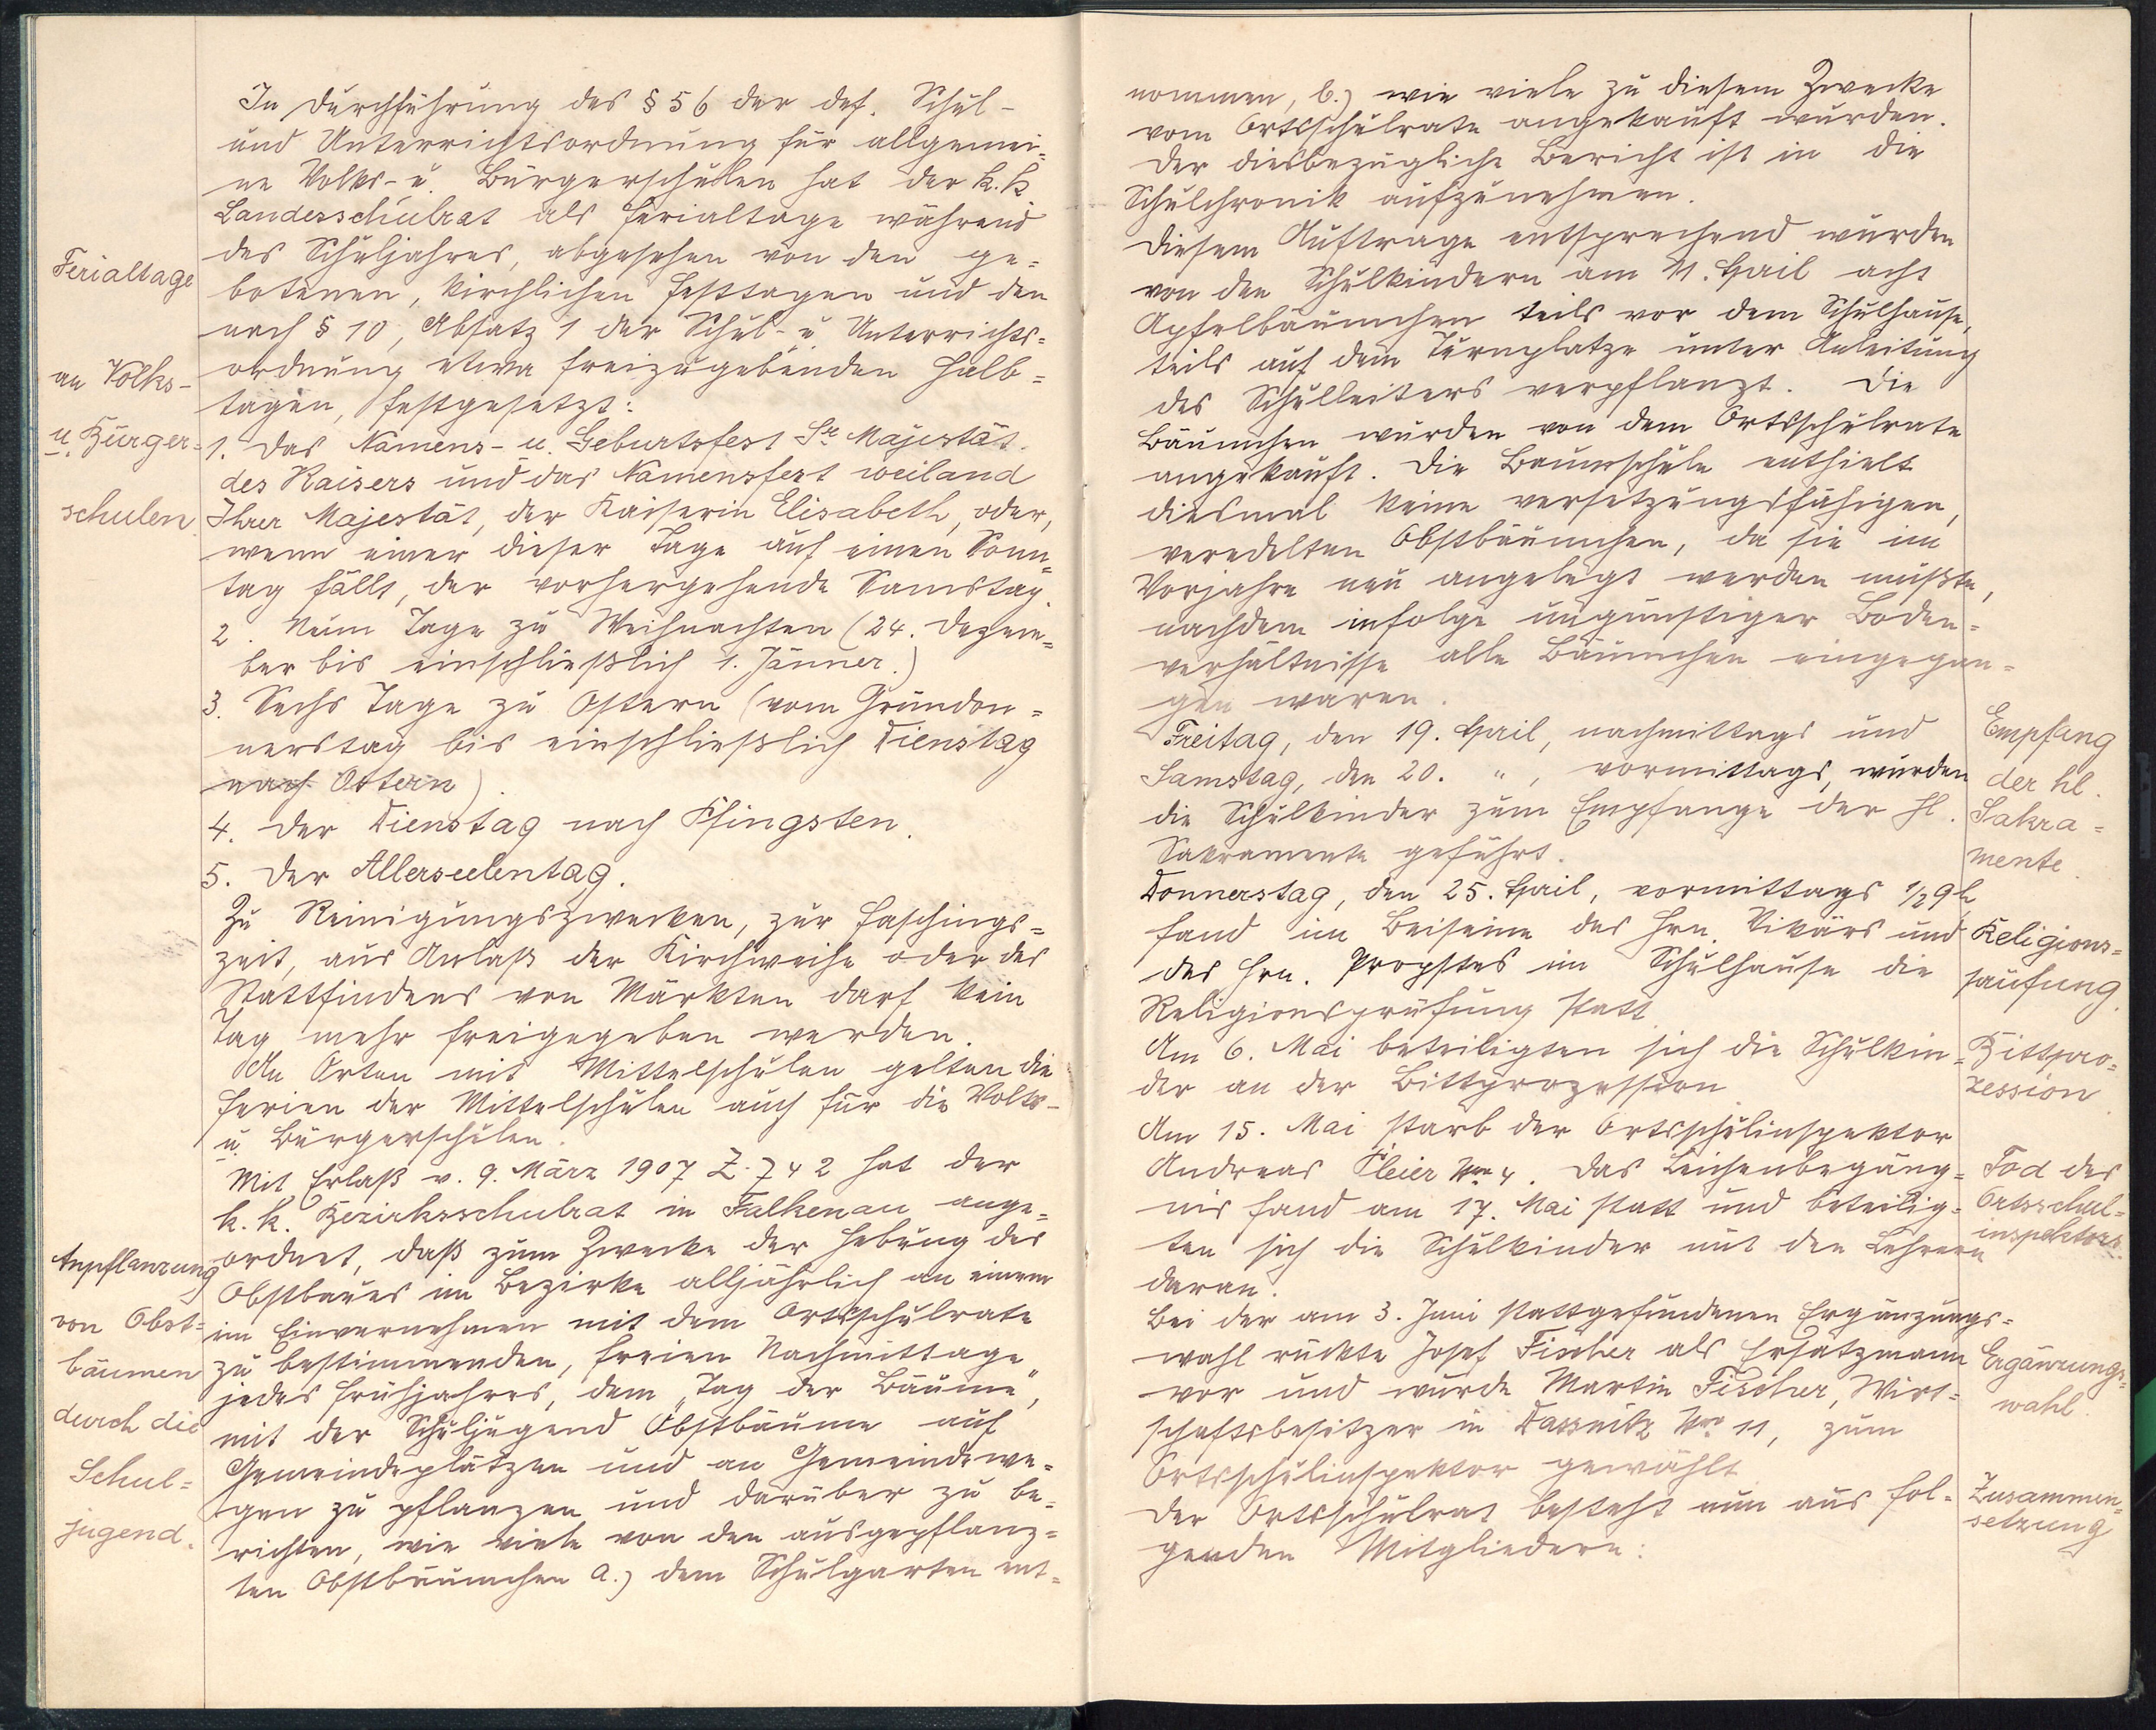 In Durchführung des § 56 der def. Schul-
und Unterrichtsordnung für allgemei=
ne Volks- u. Bürgerschulen hat der k. k.
Landesschulrat als Ferialtage während
des Schuljahres, abgesehen von den ge=
botenen, kirchlichen Festtagen und den
nach § 10, Absatz 1 der Schul- u. Unterrichts=
ordnung etwa freizugebenden Halb=
tagen, festgesetzt:
1. Das Namens- u. Geburtsfest Sr. Majestät
des Kaisers und das Namensfest weiland
Ihrer Majestät, der Kaiserin Elisabeth, oder,
wenn einer dieser Tage auf einen Sonn=
tag fällt, der vorhergehende Samstag.
2. Neun Tage zu Weihnachten (24. Dezem=
ber bis einschließlich 1. Jänner.)
3. Sechs Tage zu Ostern (vom Gründon=
nerstag bis einschließlich Dienstag
nach Ostern).
4. Der Dienstag nach Pfingsten.
5. Der Allerseelentag.
Zu Reinigungszwecken, zur Faschings=
zeit, aus Anlaß der Kirchweihe oder des
Stattfindens von Märkten darf kein
Tag mehr freigegeben werden.
An Orten mit Mittelschulen gelten die
Ferien der Mittelschulen auch für die Volks-
u. Bürgerschulen.
Mit Erlaß v. 9. März 1907 Z. 742 hat der
k. k. Bezirksschulrat in Falkenau ange=
ordnet, daß zum Zwecke der Hebung des
Obstbaues im Bezirke alljährlich an einem
im Einvernehmen mit dem Ortsschulrate
zu bestimmenden, freien Nachmittage
jedes Frühjahres, dem „Tag der Bäume“,
mit der Schuljugend Obstbäume auf
Gemeindeplätzen und an Gemeindewe=
gen zu pflanzen und darüber zu be=
richten, wie viele von den ausgepflanz=
ten Obstbäumchen a.) dem Schulgarten ent=
Ferialtage
an Volks-
u. Bürger=
schulen
Anpflanzung
von Obst=
bäumen
durch die
Schul=
jugend.
nommen, b.) wie viele zu diesem Zwecke
vom Ortsschulrate angekauft wurden.
Der diesbezügliche Bericht ist in die
Schulchronik aufzunehmen.
Diesem Auftrage entsprechend wurden
von den Schulkindern am 11. April acht
Apfelbäumchen teils vor dem Schulhause,
teils auf dem Turnplatze unter Anleitung
des Schulleiters verpflanzt. Die
Bäumchen wurden von dem Ortsschulrate
angekauft. Die Baumschule enthielt
diesmal keine versetzungsfähigen,
veredelten Obstbäumchen, da sie im
Vorjahre neu angelegt werden mußte,
nachdem infolge ungünstiger Boden=
verhältnisse alle Bäumchen eingegan=
gen waren.
Freitag, den 19. April, nachmittags und
Samstag, den 20. „ , vormittags, wurden
die Schulkinder zum Empfange der hl.
Sakramente geführt.
Donnerstag, den 25. April, vormittags 1/2 9h
fand im Beiseine des Hrn. Vikärs und
des Hrn. Propstes im Schulhause die
Religionsprüfung statt.
Am 6. Mai beteiligten sich die Schulkin=
der an der Bittprozession.
Am 15. Mai starb der Ortsschulinspektor
Andreas Pleier Nro 4. Das Leichenbegäng=
nis fand am 17. Mai statt und beteilig=
ten sich die Schulkinder mit den Lehrern
daran.
Bei der am 3. Juni stattgefundenen Ergänzungs=
wahl rückte Josef Fischer als Ersatzmann
vor und wurde Martin Fischer, Wirt=
schaftsbesitzer in Dassnitz Nro 11, zum
Ortsschulinspektor gewählt.
Der Ortsschulrat besteht nun aus fol=
genden Mitgliedern:
Empfang
der hl.
Sakra=
mente.
Religions=
prüfung.
Bittpro=
zession.
Tod des
Ortsschul=
inspektors.
Ergänzungs=
wahl.
Zusammen=
setzung